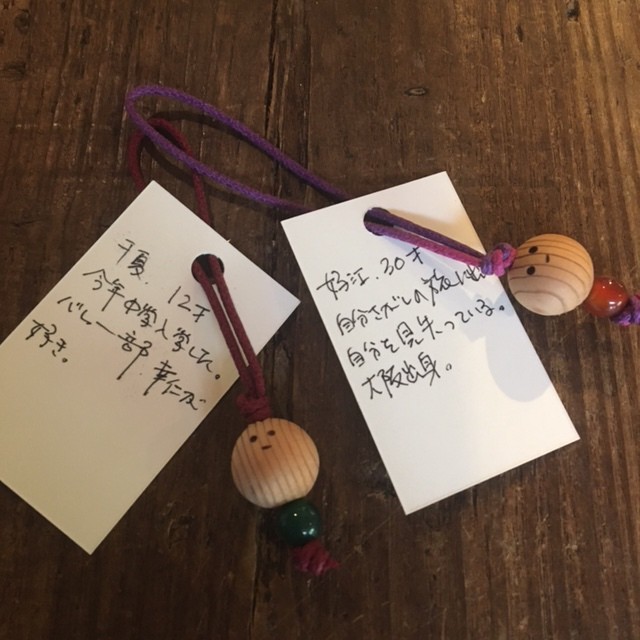 千夏、12才
今年中学入学した。
バレー部。
好き。
好江、30才
自分さがしの旅に出
自分を見失っている。
大阪出身。